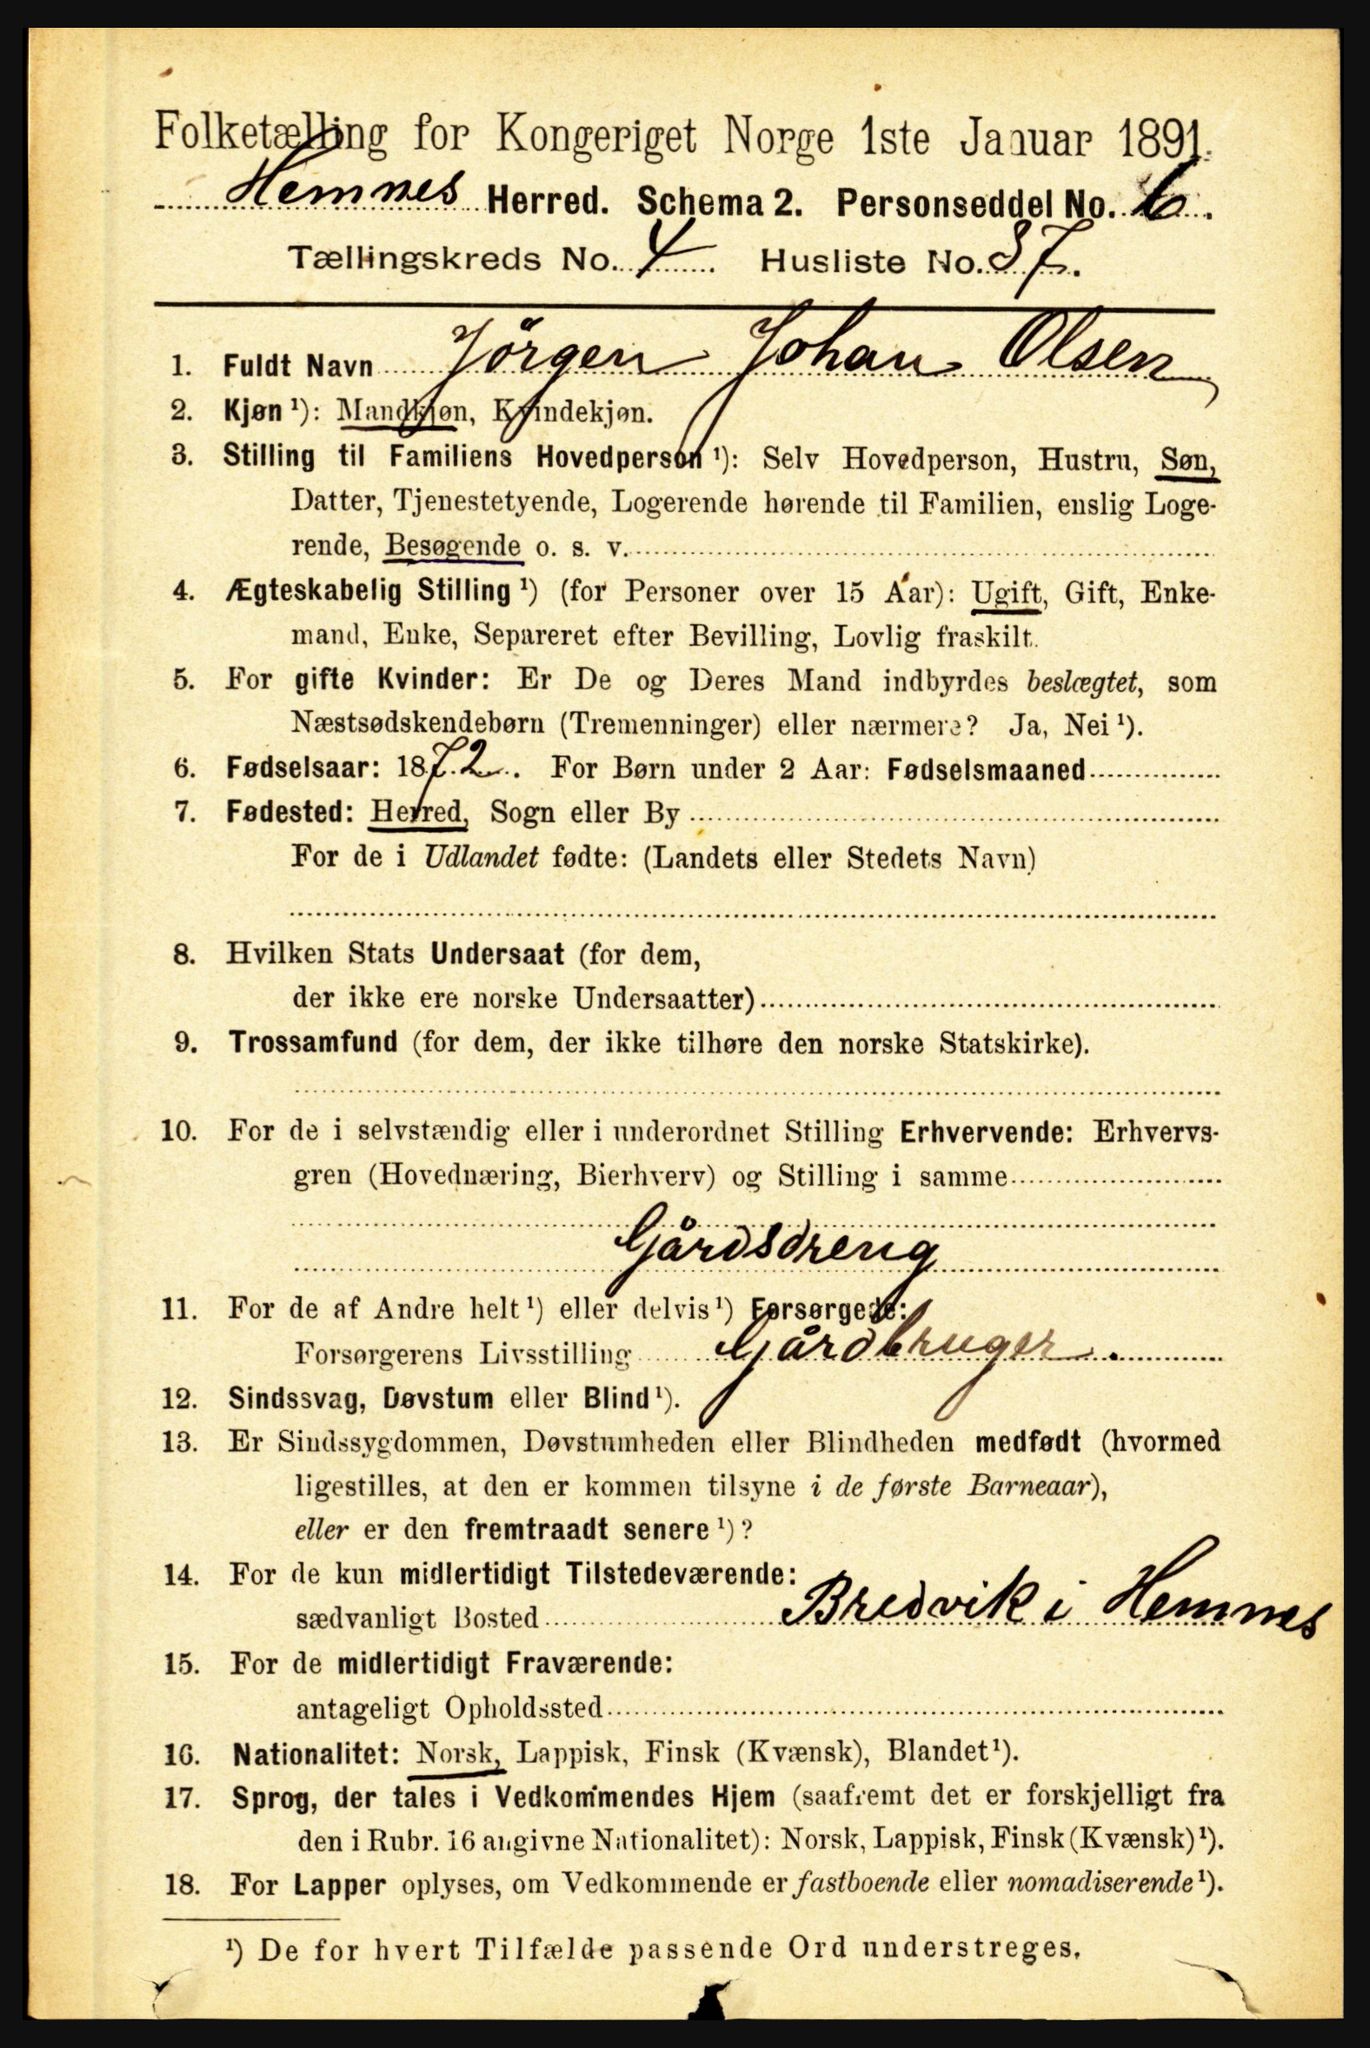 Folketælling for Kongeriget Norge 1ste Januar 1891.
Hemnes Herred. Schema 2. Personseddel No. 6.
Tællingskreds No. 4 Husliste No. 37.
1. Fuldt Navn Jörgen Johan Olsen
2. Kjøn ¹): Mandkjøn, Kvindekjøn.
3. Stilling til Familiens Hovedperson ¹): Selv Hovedperson, Hustru, Søn,
Datter, Tjenestetyende, Logerende hørende til Familien, enslig Loge-
rende, Besøgende o. s. v.
4. Ægteskabelig Stilling ¹) (for Personer over 15 Aar): Ugift, Gift, Enke-
mand, Enke, Separeret efter Bevilling, Lovlig fraskilt.
5. For gifte Kvinder: Er De og Deres Mand indbyrdes beslægtet, som
Næstsødskendebørn (Tremenninger) eller nærmere? Ja, Nei ¹).
6. Fødselsaar: 1872. For Børn under 2 Aar: Fødselsmaaned
7. Fødested: Herred, Sogn eller By
For de i Udlandet fødte: (Landets eller Stedets Navn)
8. Hvilken Stats Undersaat (for dem,
der ikke ere norske Undersaatter)
9. Trossamfund (for dem, der ikke tilhøre den norske Statskirke).
10. For de i selvstændig eller i underordnet Stilling Erhvervende: Erhvervs-
gren (Hovednæring, Bierhverv) og Stilling i samme
Gårdsdreng
11. For de af Andre helt ¹) eller delvis ¹) Forsørgede:
Forsørgerens Livsstilling Gårdbruger.
12. Sindssvag, Døvstum eller Blind ¹).
13. Er Sindssygdommen, Døvstumheden eller Blindheden medfødt (hvormed
ligestilles, at den er kommen tilsyne i de første Barneaar),
eller er den fremtraadt senere ¹)?
14. For de kun midlertidigt Tilstedeværende:
sædvanligt Bosted Bredvik i Hemnes
15. For de midlertidigt Fraværende:
antageligt Opholdssted
16. Nationalitet: Norsk, Lappisk, Finsk (Kvænsk), Blandet ¹).
17. Sprog, der tales i Vedkommendes Hjem (saafremt det er forskjelligt fra
den i Rubr. 16 angivne Nationalitet): Norsk, Lappisk, Finsk (Kvænsk) ¹).
18. For Lapper oplyses, om Vedkommende er fastboende eller nomadiserende ¹).
¹) De for hvert Tilfælde passende Ord understreges.